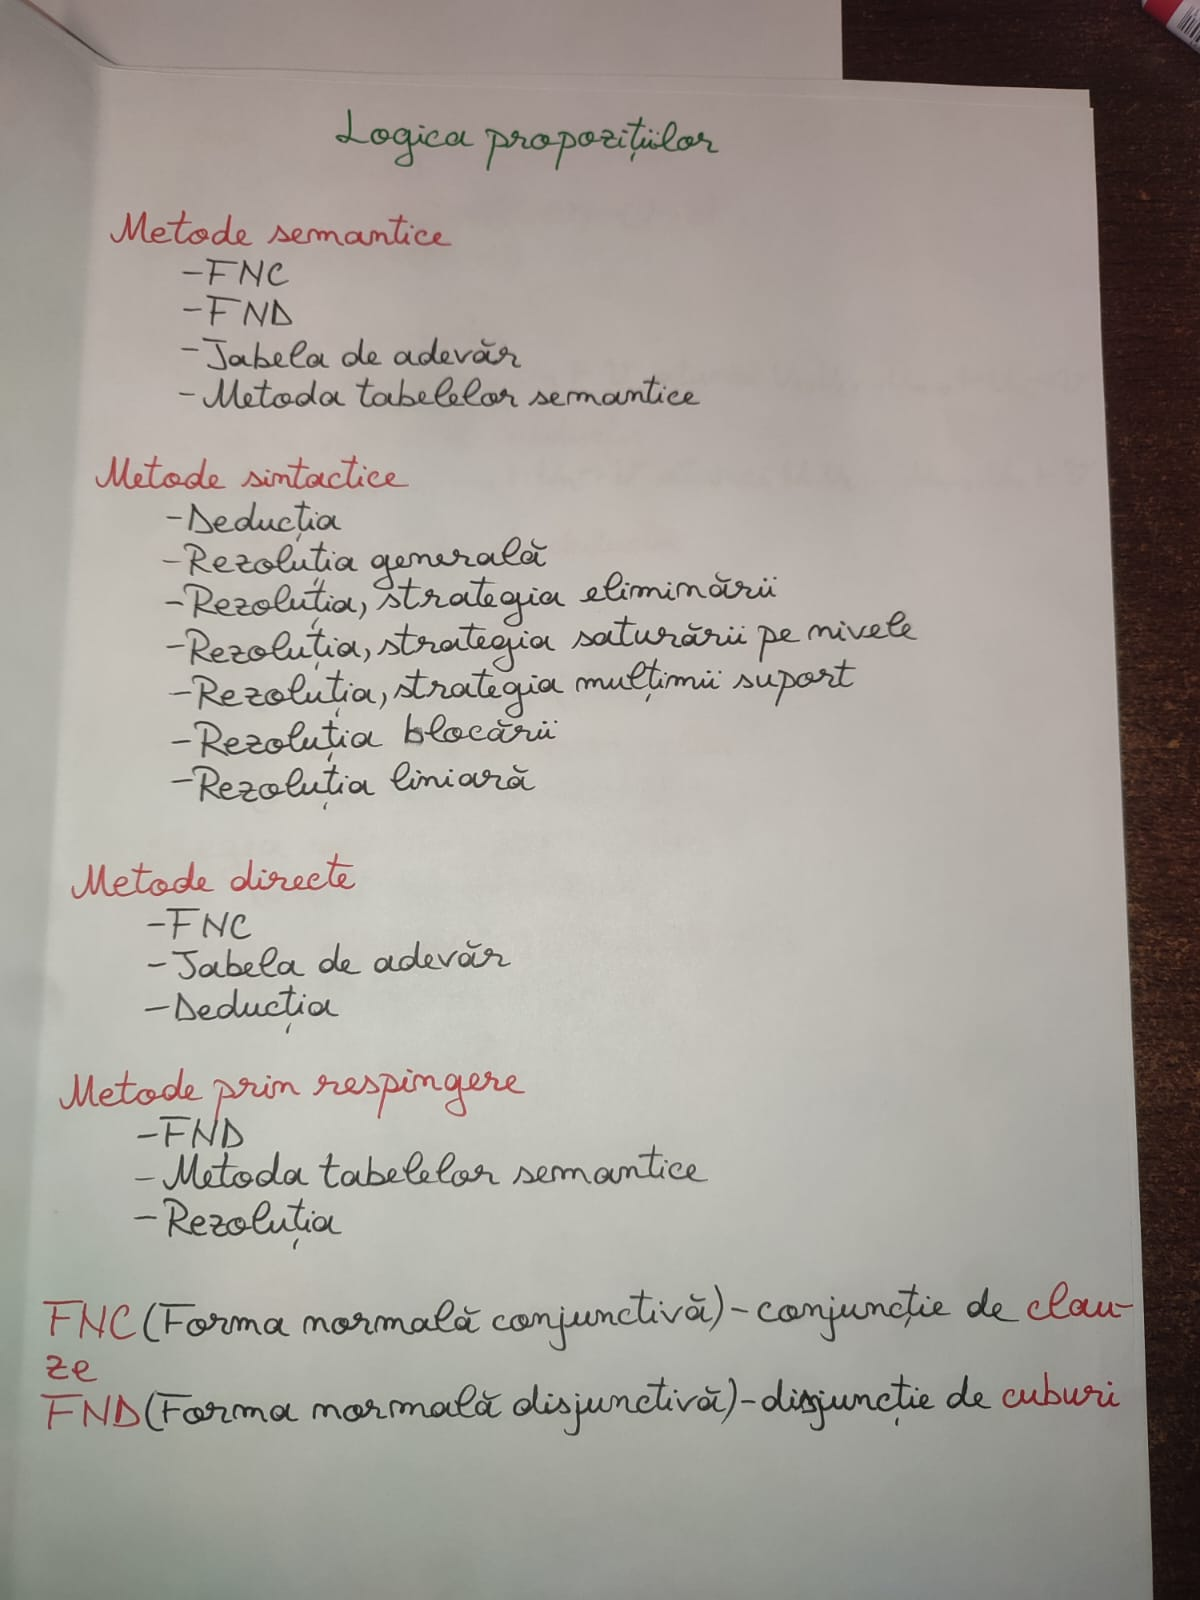 Logica propozițiilor
Metode semantice
-FNC
-FND
-Tabela de adevăr
-Metoda tabelelor semantice
Metode sintactice
-Deducția
-Rezoluția generală
-Rezoluția, strategia eliminării
-Rezoluția, strategia saturării pe nivele
-Rezoluția, strategia mulțimii suport
-Rezoluția blocării
-Rezoluția liniară
Metode directe
-FNC
-Tabela de adevăr
-Deducția
Metode prin respingere
-FND
-Metoda tabelelor semantice
-Rezoluția
FNC (Forma normală conjunctivă)-conjuncție de clau-
ze
FND (Forma normală disjunctivă)-disjuncție de cuburi